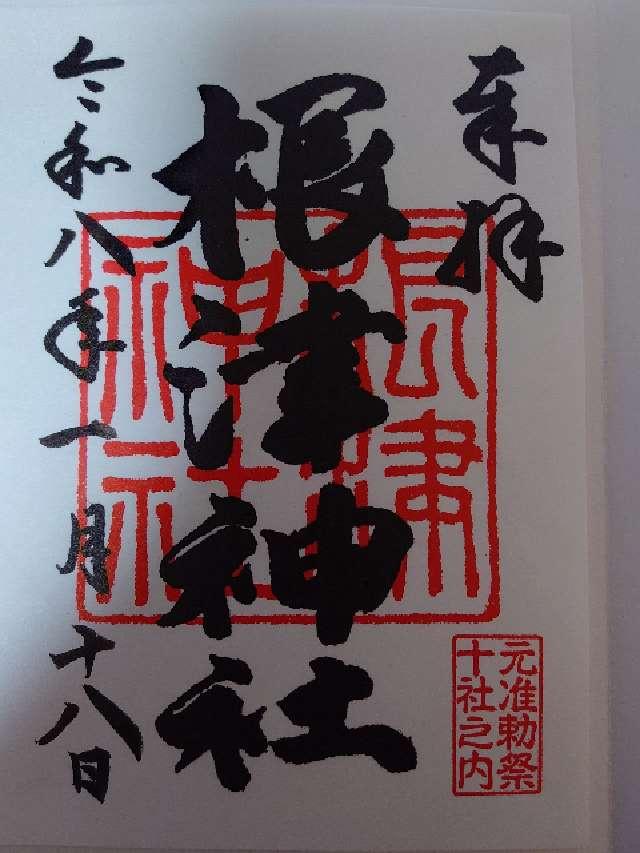 奉拝
根津神社
根津
神社
元准勅祭
十社之内
令和八年一月十八日